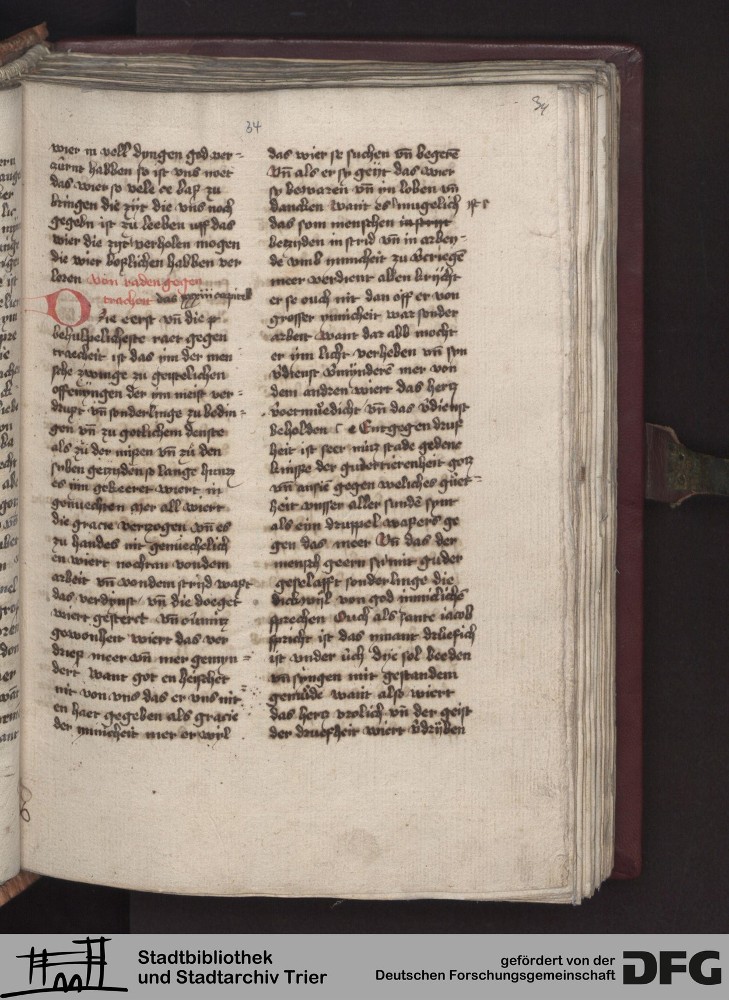 34
34
wier in voll dyngen god ver-
zůrnt habben so ist vns noet
das wier so vele de bas zu
bringen die zijt die vns noch
gegebn ist zu leeben uff das
wier die zijt verholen mogen
die wier boßlichen habben ver
loren von raden gegen
tracheit das xxxiii capitel
Die eerst vn̄ die
behulpelicheste raet gegen
traecheit ist das im der men
sche zwinge zu geistelichen
offenyngen der im meist ver-
drupt vn̄ sonderlinge zu bedin-
gen vn̄ zu gotlichem denste
als zu der missen vn̄ zu den
suben getzyden so lange huntz
es im gekeeret wiert in
gonuechten Mer all wiert
die gracie verzogen vn̄ es
zu handes nit genuechelich
en wiert nochtan von dem
arbeit vn̄ von dem strijd wast
das verdynst vn̄ die doeget
wiert gesterct vn̄
gewonheit wiert das ver
dries meer vn̄ mer gemyn-
dert want got en heischet
nit von vns das er vns nit
en haet gegeben als gracie
der innicheit mer er wyl
das wier se suchen vn̄ begerē
vn̄ als er sy gijt das wier
sy bewaren vn̄ ym loben vn̄
dancken want es mugelich ist
das som menschen
betzyden in strid vn̄ in arbey-
de vmb innicheit zu
meer verdient allen krijcht
er se ouch nit dan off er von
grosser ynnicheit war sonder
arbeit want dar abb mocht
er im licht verheben vn̄ syn
vdienst vmynderē mer von
dem andren wiert das hertz
voetmuedicht vn̄ das vdienst
beholden Entgegen druf
heit ist seer nutz stade gedenc
knisse der guderrierenheit gotz
vn̄ ansie gegen weliches guet-
heit vnsser aller sundē synt
als ein druppel wassers ge
gen das meer Vn̄ das der
mensch geern sy mit guder
geselschafft sonderlinge die
dickwijl von god innicliche
sprechen Ouch als sante iacob
spricht ist das imant druefich
ist vnder uch dye sol beeden
vn̄ syngen mit gestandem
gemude want also wiert
das hertz vrolich vn̄ der geist
der druefheit wiert vdrijben
Stadtbibliothek
und Stadtarchiv Trier
gefördert von der
Deutschen Forschungsgemeinschaft
DFG